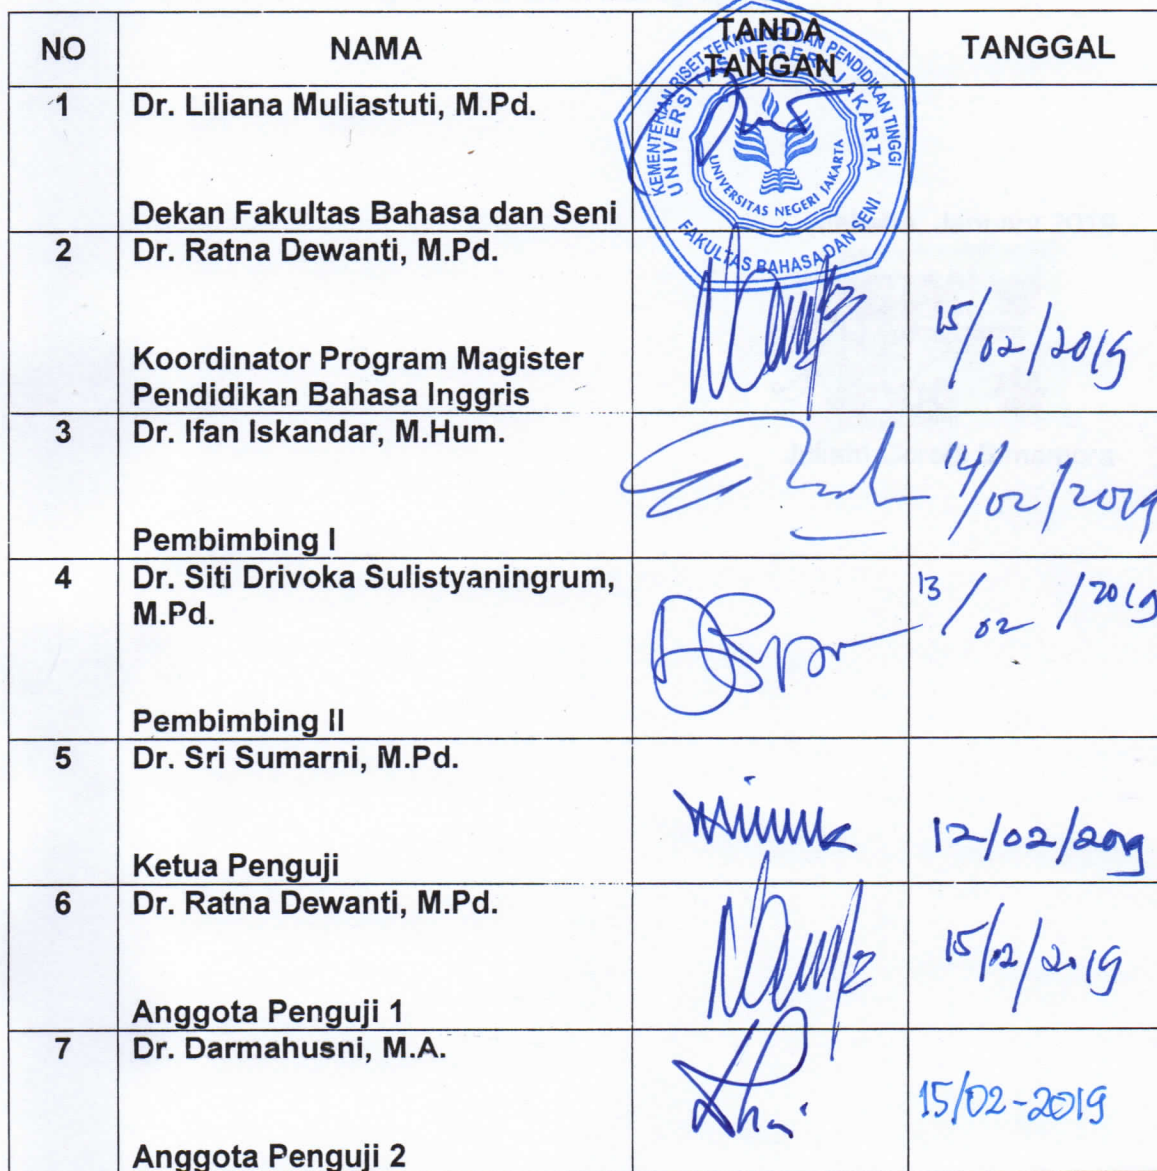 NO NAMA TANDA TANGAN TANGGAL
1 Dr. Liliana Muliastuti, M.Pd.
Dekan Fakultas Bahasa dan Seni
KEMENTERIAN RISET TEKNOLOGI DAN PENDIDIKAN TINGGI
UNIVERSITAS NEGERI JAKARTA
UNIVERSITAS NEGERI JAKARTA
FAKULTAS BAHASA DAN SENI
2 Dr. Ratna Dewanti, M.Pd.
Koordinator Program Magister
Pendidikan Bahasa Inggris
15/02/2019
3 Dr. Ifan Iskandar, M.Hum.
Pembimbing I
14/02/2019
4 Dr. Siti Drivoka Sulistyaningrum,
M.Pd.
Pembimbing II
13/02/2019
5 Dr. Sri Sumarni, M.Pd.
Ketua Penguji
12/02/2019
6 Dr. Ratna Dewanti, M.Pd.
Anggota Penguji 1
15/02/2019
7 Dr. Darmahusni, M.A.
Anggota Penguji 2
15/02-2019